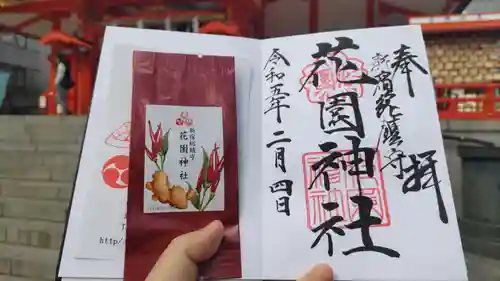 新宿総鎮守
花園神社
http:/
奉拝
新宿総鎮守
花園神社
令和五年二月四日